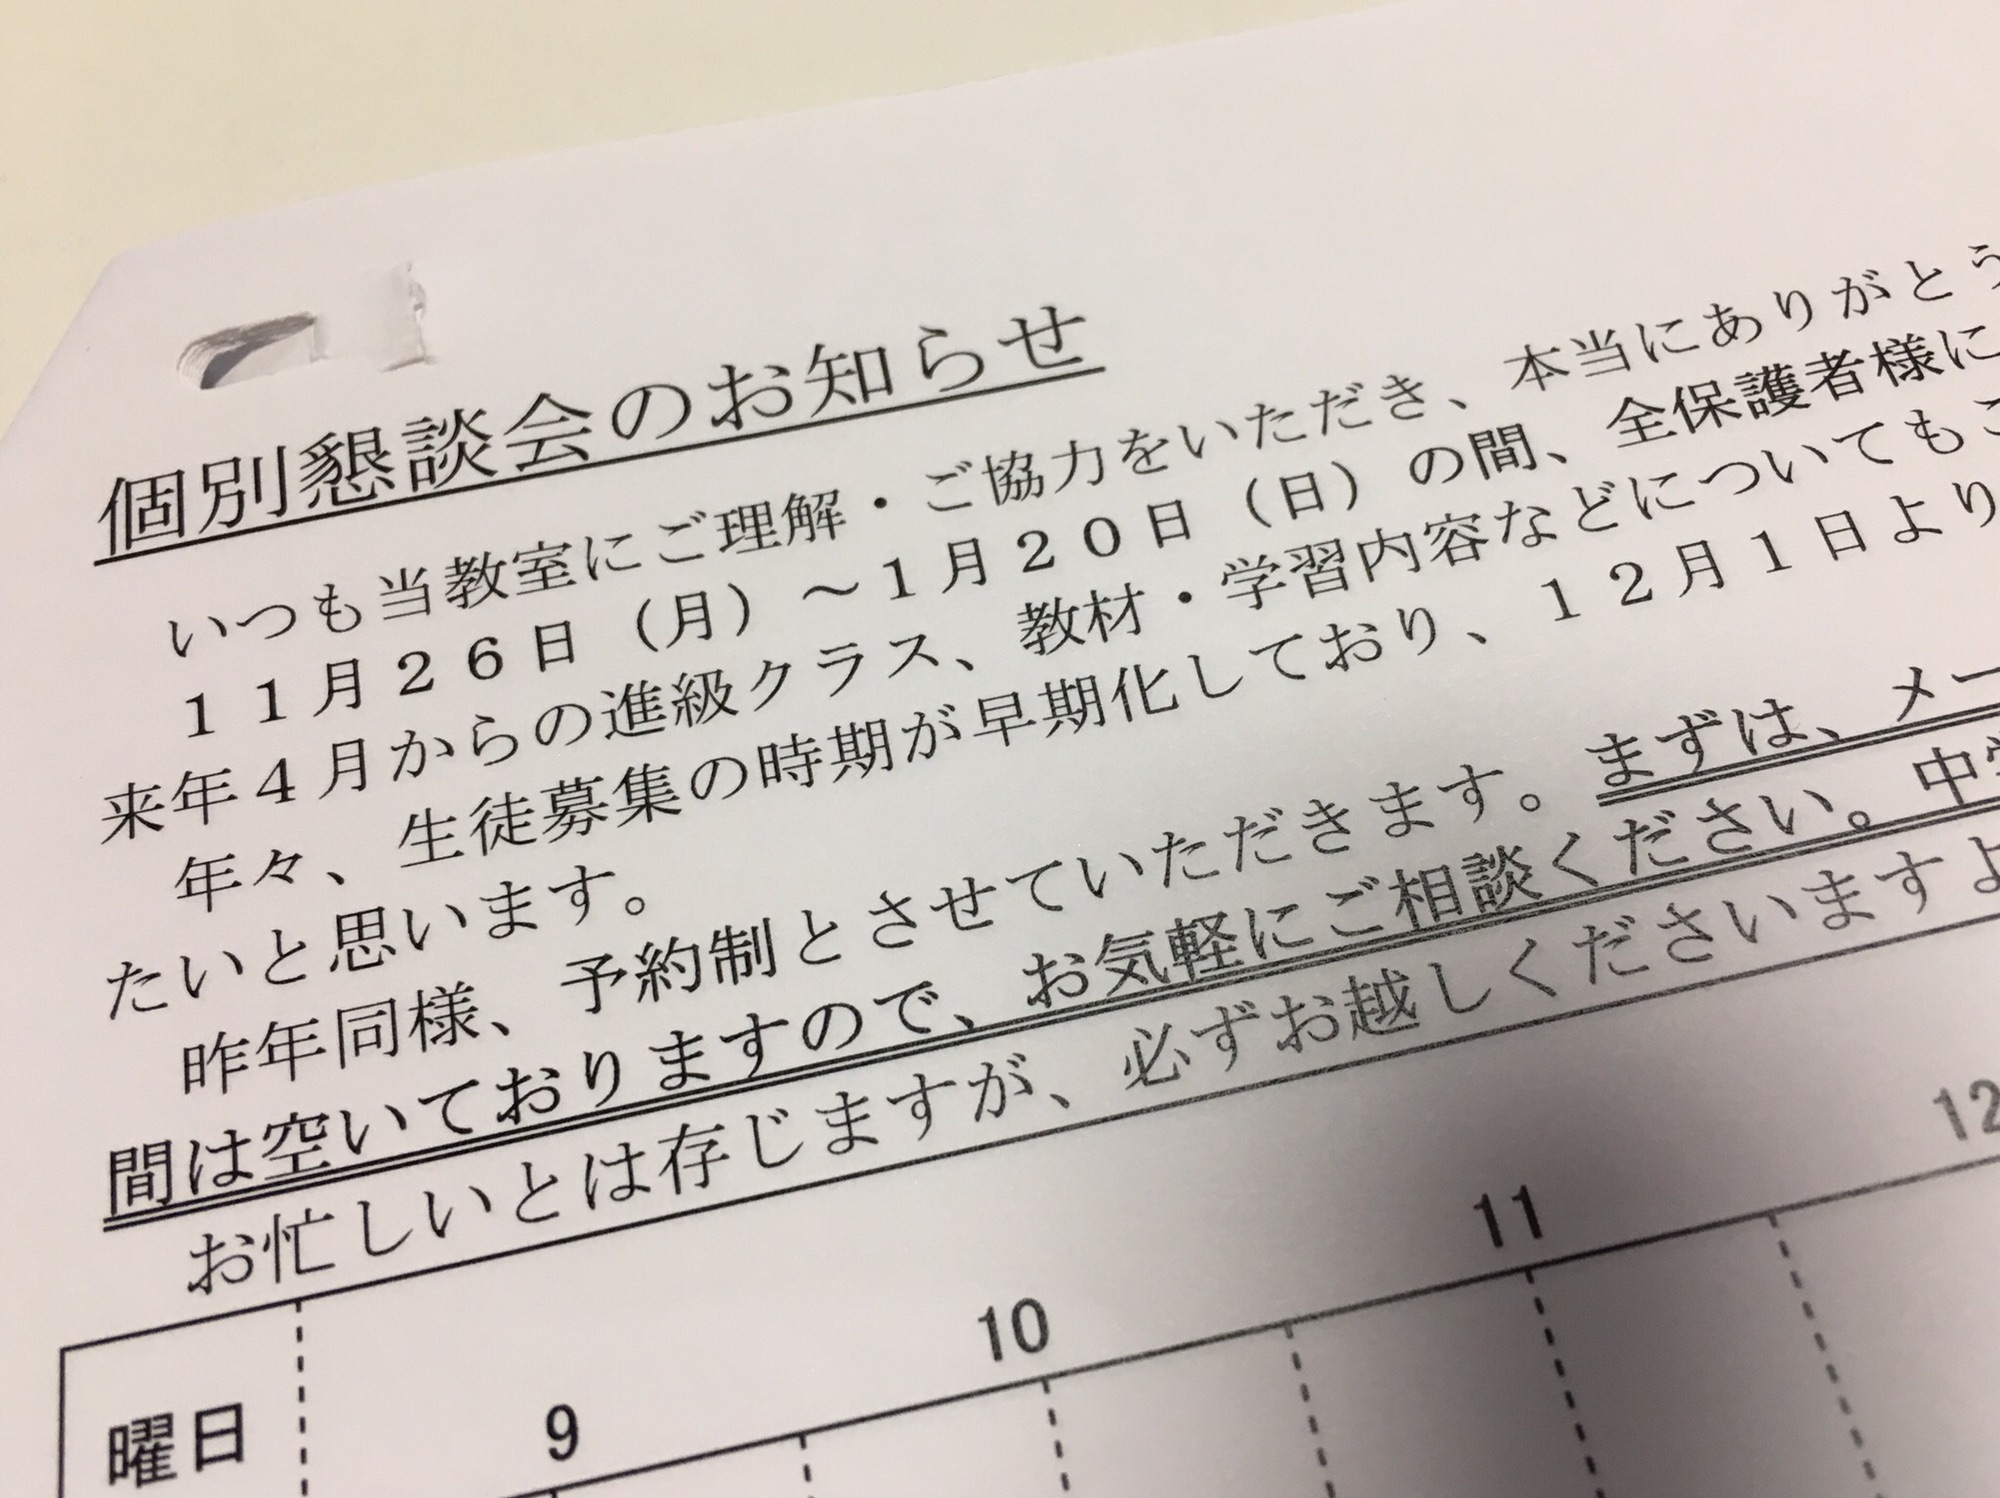 個別懇談会のお知らせ
いつも当教室にご理解・ご協力をいただき、本当にありがとう
１１月２６日（月）～１月２０日（日）の間、全保護者様に
来年４月からの進級クラス、教材・学習内容などについてもご
年々、生徒募集の時期が早期化しており、１２月１日より
たいと思います。
昨年同様、予約制とさせていただきます。まずは、メー
間は空いておりますので、お気軽にご相談ください。中学
お忙しいとは存じますが、必ずお越しくださいますよ
曜日 9 10 11 12